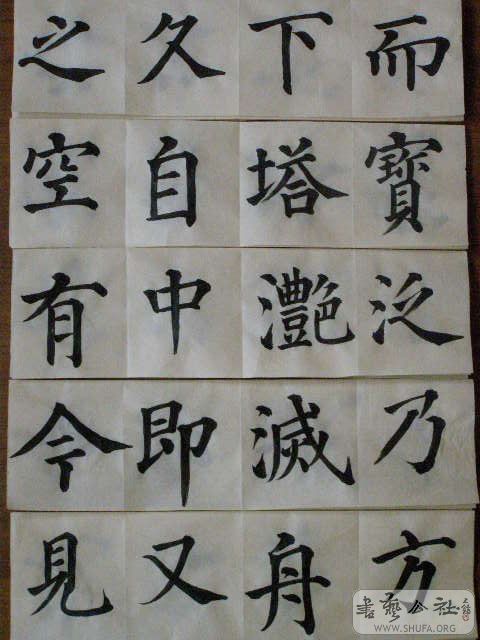 而下久之
寶塔自空
泛灔中有
乃滅即今
方舟又見
書藝公社
WWW.SHUFA.ORG